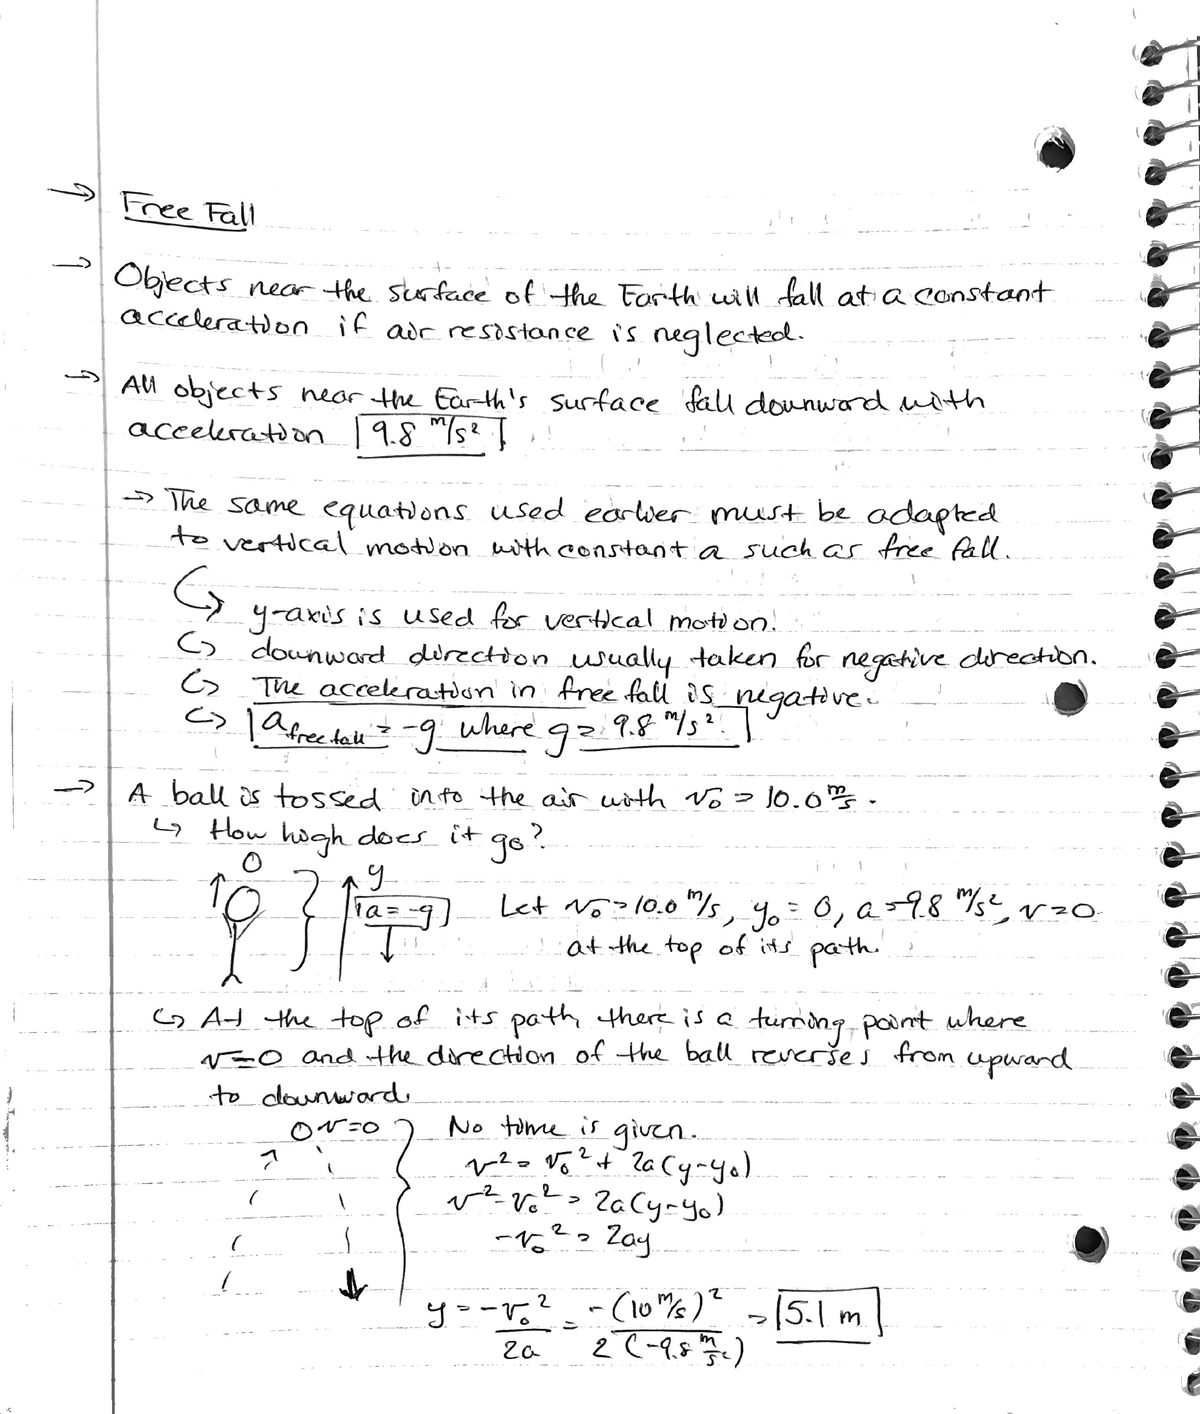 → Free Fall
→ Objects near the surface of the Earth will fall at a constant
acceleration if air resistance is neglected.
→ All objects near the Earth's surface fall downward with
acceleration 9.8 m/s²
→ The same equations used earlier must be adapted
to vertical motion with constant a such as free fall.
↪ y-axis is used for vertical motion.
↪ downward direction usually taken for negative direction.
↪ The acceleration in free fall is negative.
↪ a free fall = -g where g = 9.8 m/s².
→ A ball is tossed into the air with v₀ = 10.0 m/s.
↪ How high does it go?
y
a = -g
Let v₀ = 10.0 m/s, y₀ = 0, a = -9.8 m/s², v = 0
at the top of its path.
↪ At the top of its path, there is a turning point where
v = 0 and the direction of the ball reverses from upward
to downward.
v = 0
No time is given.
v² = v₀² + 2a(y - y₀)
v² - v₀² = 2a(y - y₀)
-v₀² = 2ay
y = -v₀²/2a = -(10 m/s)²/2(-9.8 m/s²) = 5.1 m